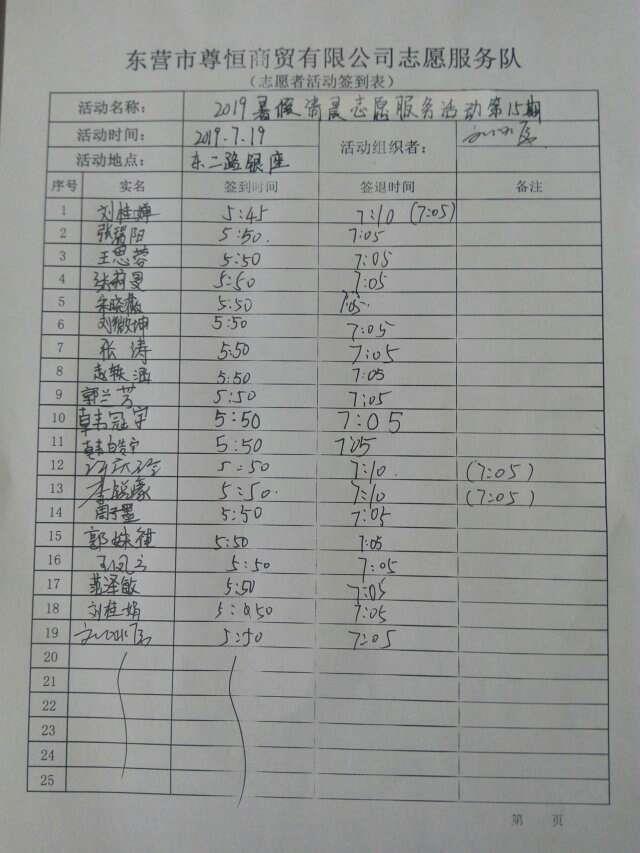 东营市尊恒商贸有限公司志愿服务队
（志愿者活动签到表）
活动名称： 2019暑假清晨志愿服务活动第15期
活动时间： 2019.7.19 活动组织者：
活动地点： 东二路银座
序号 实名 签到时间 签退时间 备注
1 刘桂婵 5:45 7:10 (7:05)
2 张 阳 5:50. 7:05
3 王思蓉 5:50 7:05
4 张莉曼 5:50 7:05
5 5:50 7:05
6 刘微坤 5:50 7:05
7 张涛 5:50 7:05
8 涵 5:50 7:05
9 郭兰芳 5:50 7:05
10 韩冠宇 5:50 7:05
11 5:50 7:05
12 5:50 7:10 (7:05)
13 李 豪 5:50 7:10 (7:05)
14 周子墨 5:50 7:05
15 郭姝 5:50 7:05
16 5:50 7:05
17 范泽敏 5:50 7:05
18 刘桂娟 5:50 7:05
19 5:50 7:05
20
21
22
23
24
25
第 页